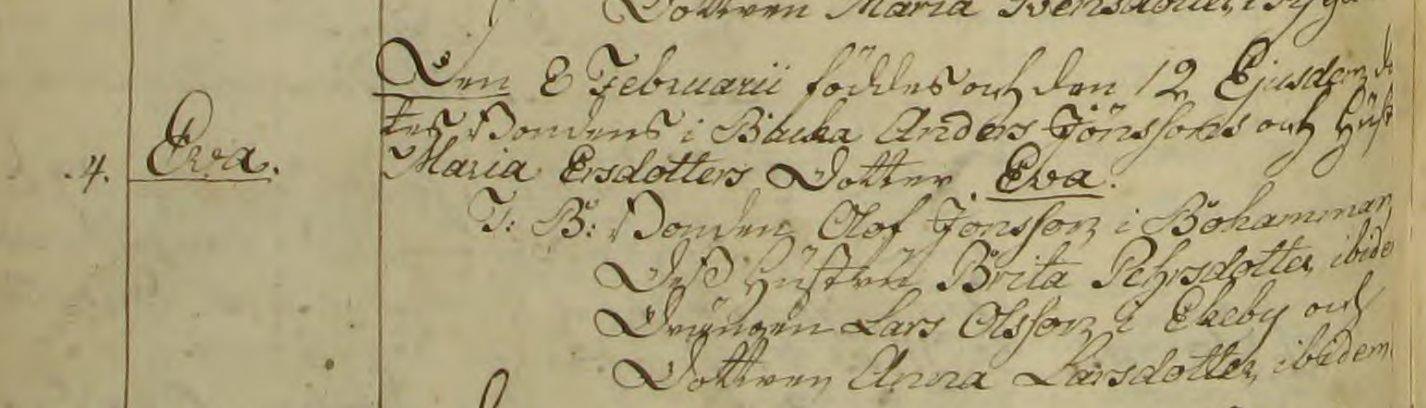 Dottren Maria Bensdotter, i
Den 8 Februarii föddes och den 12 Ejusdem dö
tes Bondens i Backa Anders Jönssons och Hust
4. Eva. Maria Ersdotters Dotter Eva.
T: B: Bonden Olof Jonsson i Bohammar
Dess Hustru Brita Pehrsdotter, ibide
Drängen Lars Olsson i Ekeby och
Dottren Anna Larsdotter, ibidem